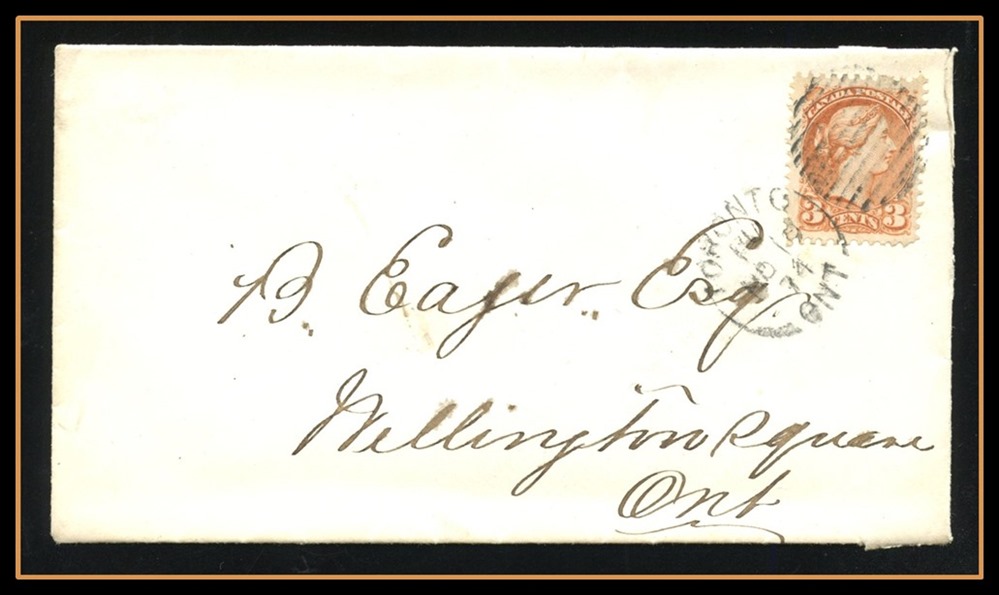 CANADA POSTAGE
3 CENTS 3
TORONTO
74
ONT
B. Eager Esq
Wellington Square
Ont